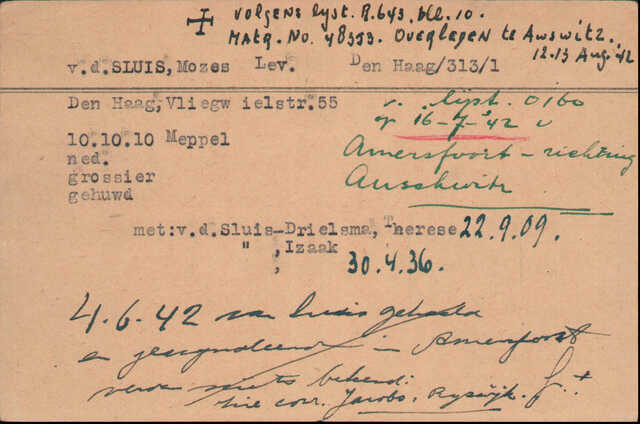 volgens lyst. R.643. bl. 10.
Matr. No. 48353. Overleden te Auswitz.
12.-13 Aug. '42
v.d. SLUIS, Mozes Lev. Den Haag/313/1
Den Haag, Vliegw ielstr. 55
v. lijst. 0160
op 16-7-'42 v
10.10.10 Meppel
Amersfoort - richting
ned.
grossier
Auschwitz
gehuwd
met: v.d. Sluis-Drielsma, Therese 22.9.09.
" , Izaak
; 30.4.36.
4.6.42 van huis gehaald
en gesignaleerd in Amersfoort
verder niets bekend:
zie corr. Jacobs, Ryswijk.